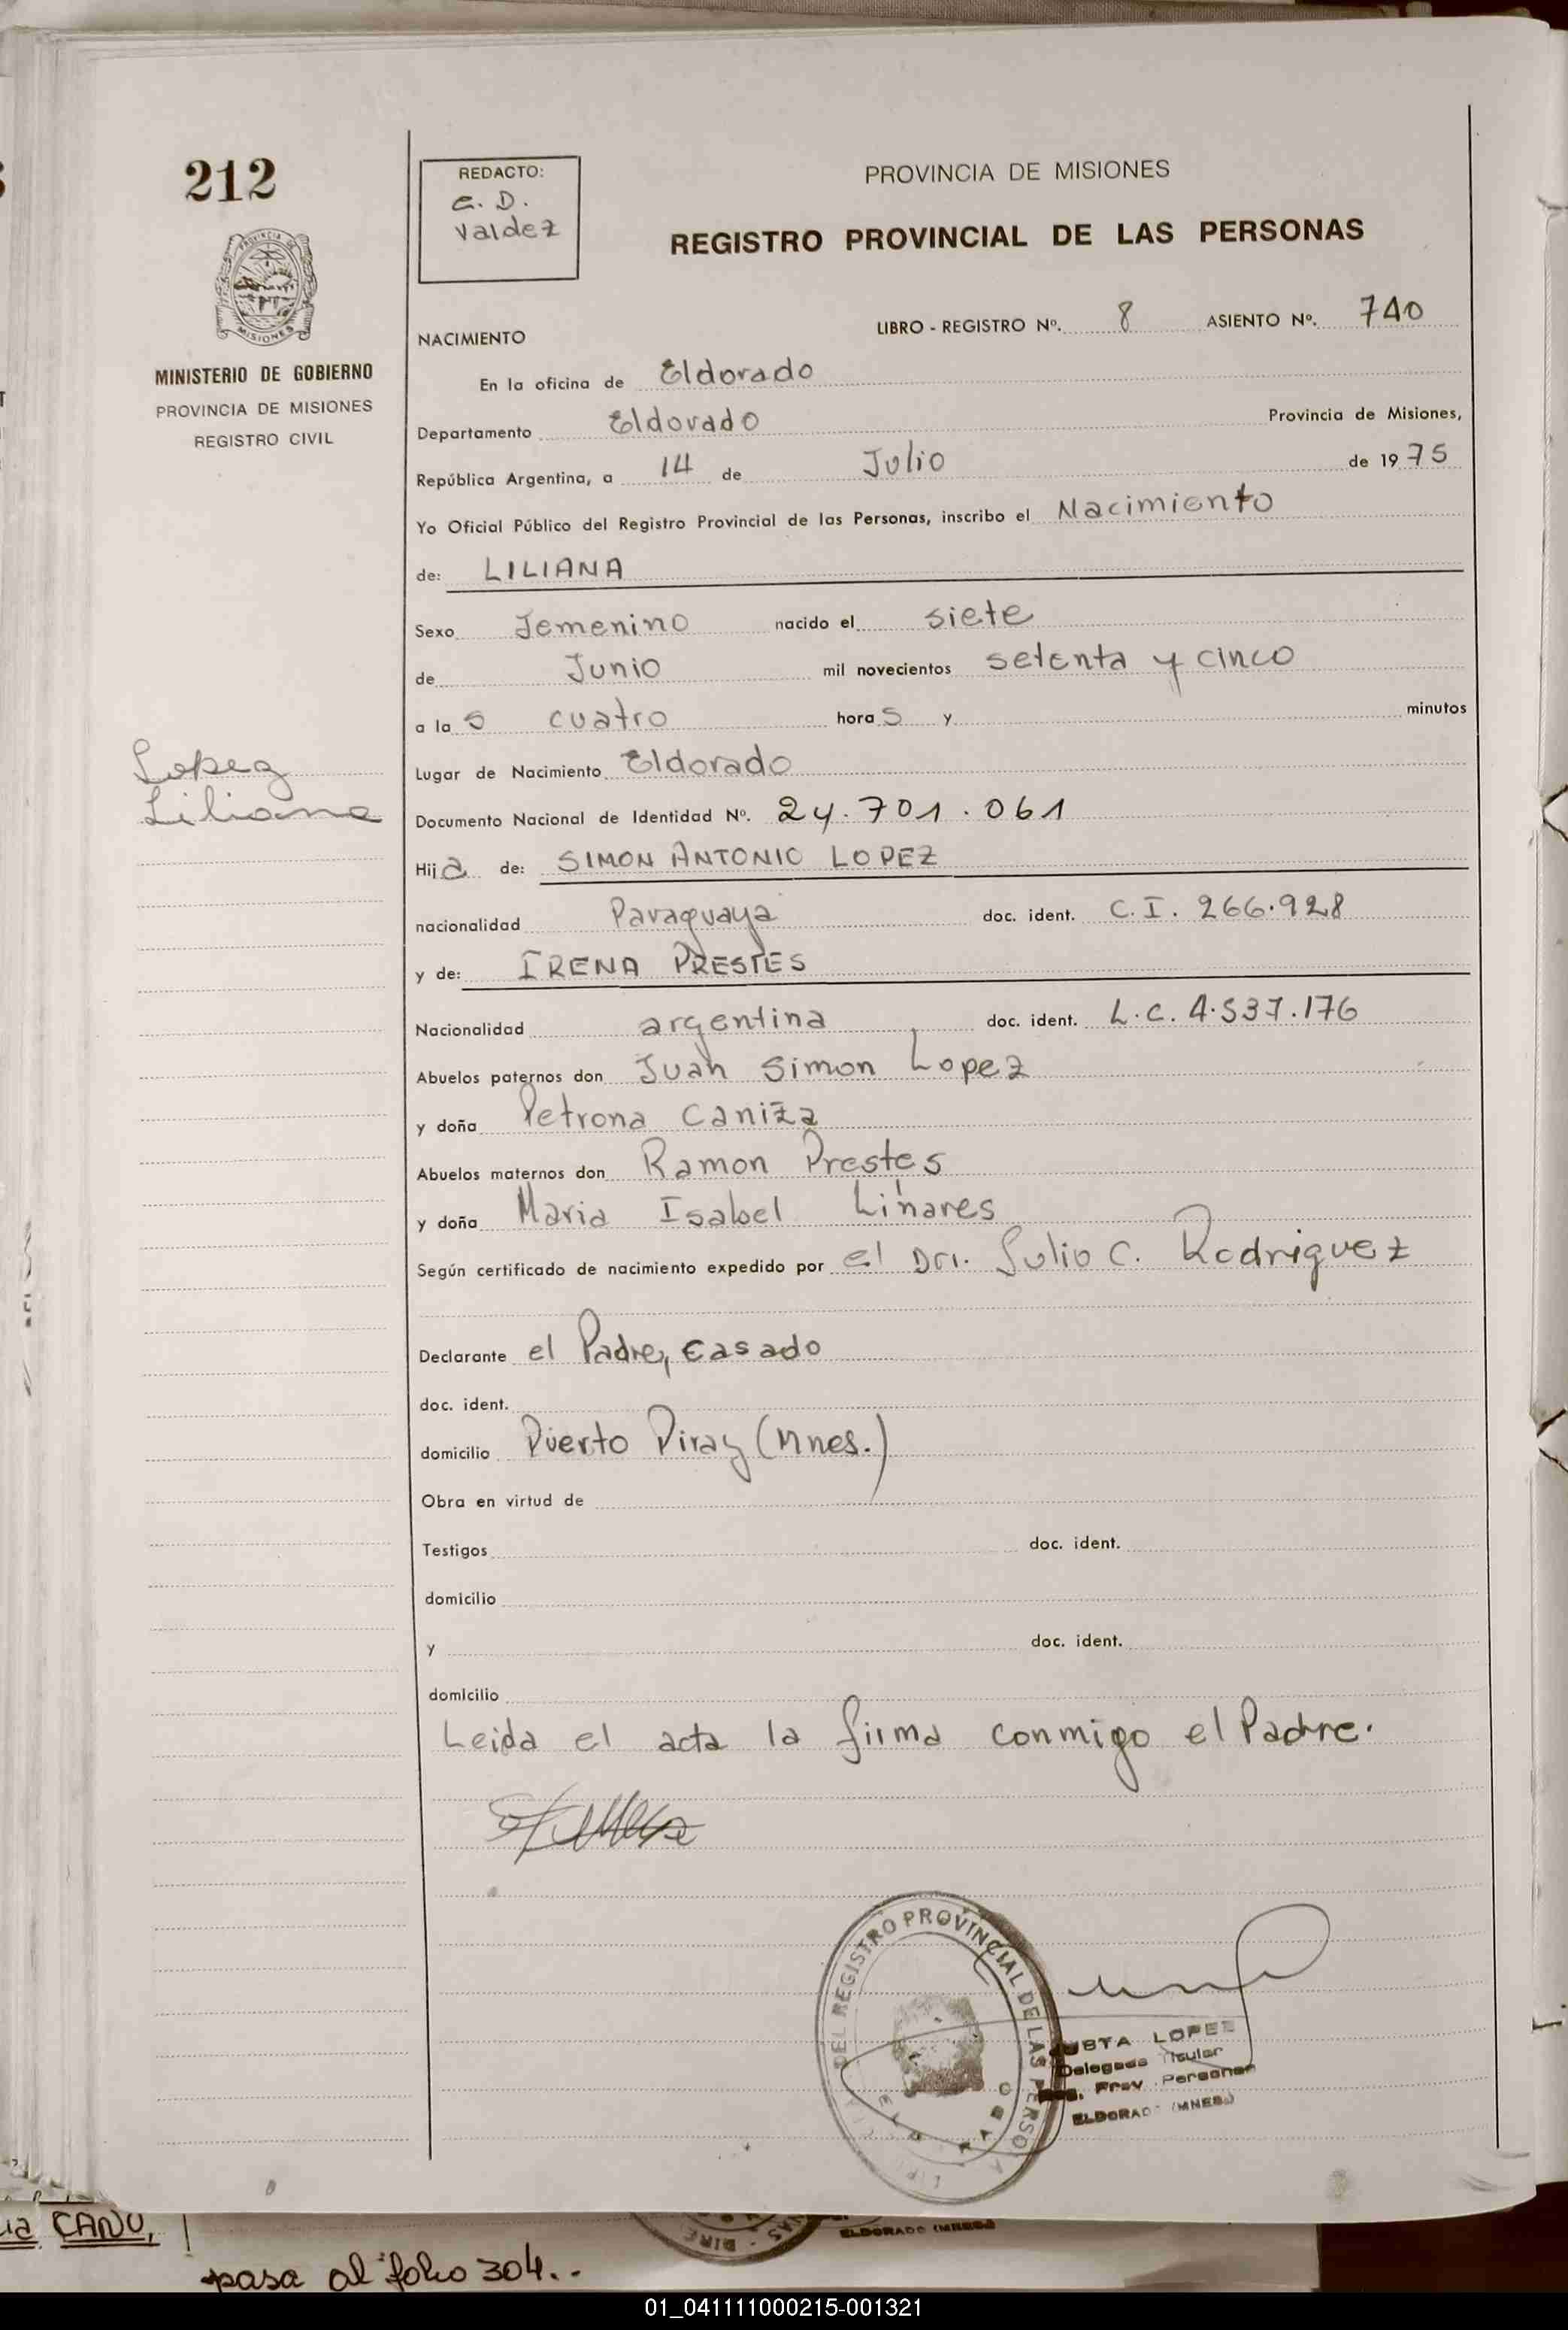 212
PROVINCIA DE
MISIONES
MINISTERIO DE GOBIERNO
PROVINCIA DE MISIONES
REGISTRO CIVIL
Lopez
Liliana
REDACTO:
e. D.
Valdez
PROVINCIA DE MISIONES
REGISTRO PROVINCIAL DE LAS PERSONAS
NACIMIENTO LIBRO - REGISTRO Nº. 8 ASIENTO Nº. 740
En la oficina de Eldorado
Departamento Eldorado Provincia de Misiones,
República Argentina, a 14 de Julio de 1975
Yo Oficial Público del Registro Provincial de las Personas, inscribo el Nacimiento
de: LILIANA
Sexo Femenino nacido el siete
de Junio mil novecientos setenta y cinco
a las cuatro horas y minutos
Lugar de Nacimiento Eldorado
Documento Nacional de Identidad Nº. 24.701.061
Hija de: SIMON ANTONIO LOPEZ
nacionalidad Paraguaya doc. ident. C.I. 266.928
y de: IRENA PRESTES
Nacionalidad argentina doc. ident. L.C. 4.537.176
Abuelos paternos don Juan Simon Lopez
y doña Petrona Caniza
Abuelos maternos don Ramon Prestes
y doña Maria Isabel Linares
Según certificado de nacimiento expedido por el Dr. Julio C. Rodriguez
Declarante el Padre, casado
doc. ident.
domicilio Puerto Piray (Mnes.)
Obra en virtud de
Testigos doc. ident.
domicilio
y doc. ident.
domicilio
Leida el acta la firma conmigo el Padre.
DEL REGISTRO PROVINCIAL DE LAS PERSO
USTA LOPEZ
Delegada Titular
Prov. Personas
ELDORADO (MNES.)
CANO,
ELDORADO (MNES.)
pasa al folio 304..
01_041111000215-001321